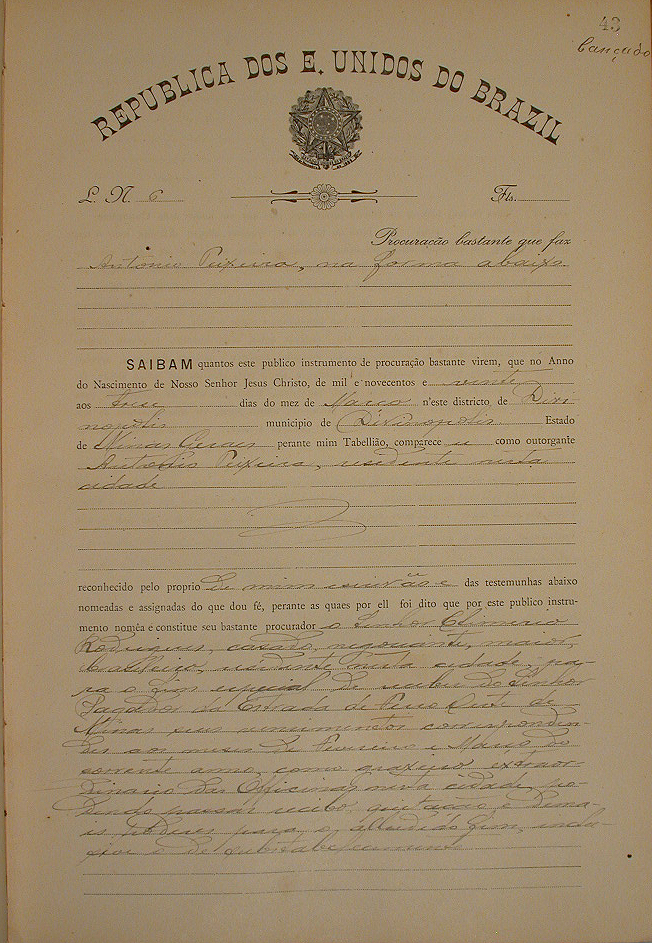 43
Cançado
REPUBLICA DOS E. UNIDOS DO BRAZIL
L. N. 6 Fls.
Procuracão bastante que faz
Antonio Teixeira, na forma abaixo.
SAIBAM quantos este publico instrumento de procuração bastante virem, que no Anno
do Nascimento de Nosso Senhor Jesus Christo, de mil e novecentos e vinte
aos treze dias do mez de Março n'este districto de Divi-
nopolis municipio de Divinopolis Estado
de Minas Geraes perante mim Tabellião, comparece u como outorgante
Antonio Teixeira, residente nesta
cidade
reconhecido pelo proprio de mim escrivão e das testemunhas abaixo
nomeadas e assignadas do que dou fé, perante as quaes por ell foi dito que por este publico instru-
mento nomêa e constitue seu bastante procurador o Senhor
Rodrigues, casado, negociante, maior,
residente nesta cidade, pa-
ra o fim especial de receber do Senhor
Pagador da Estrada de Ferro Oeste de
Minas seus vencimentos corresponden-
tes aos meses de Fevereiro e Março do
corrente anno, como graxeiro extraor-
dinario das Officinas nesta cidade, po-
dendo passar recibo, quitação e dema-
is poderes para o alludido fim, inclu-
sive o de substabelecimento